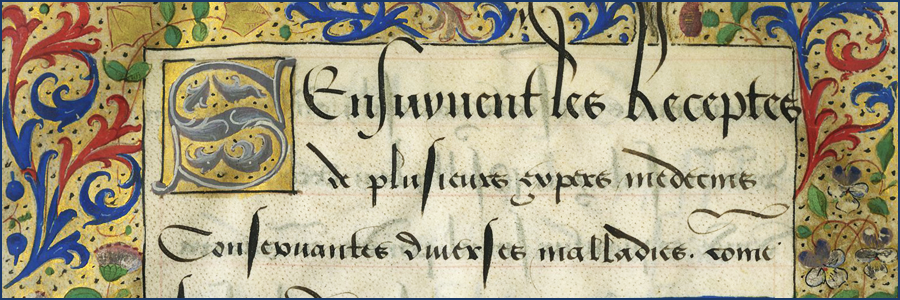 SEnsuyuent les Receptes
de plusieurs expers medecins
Consernantes diuerses malladies. come